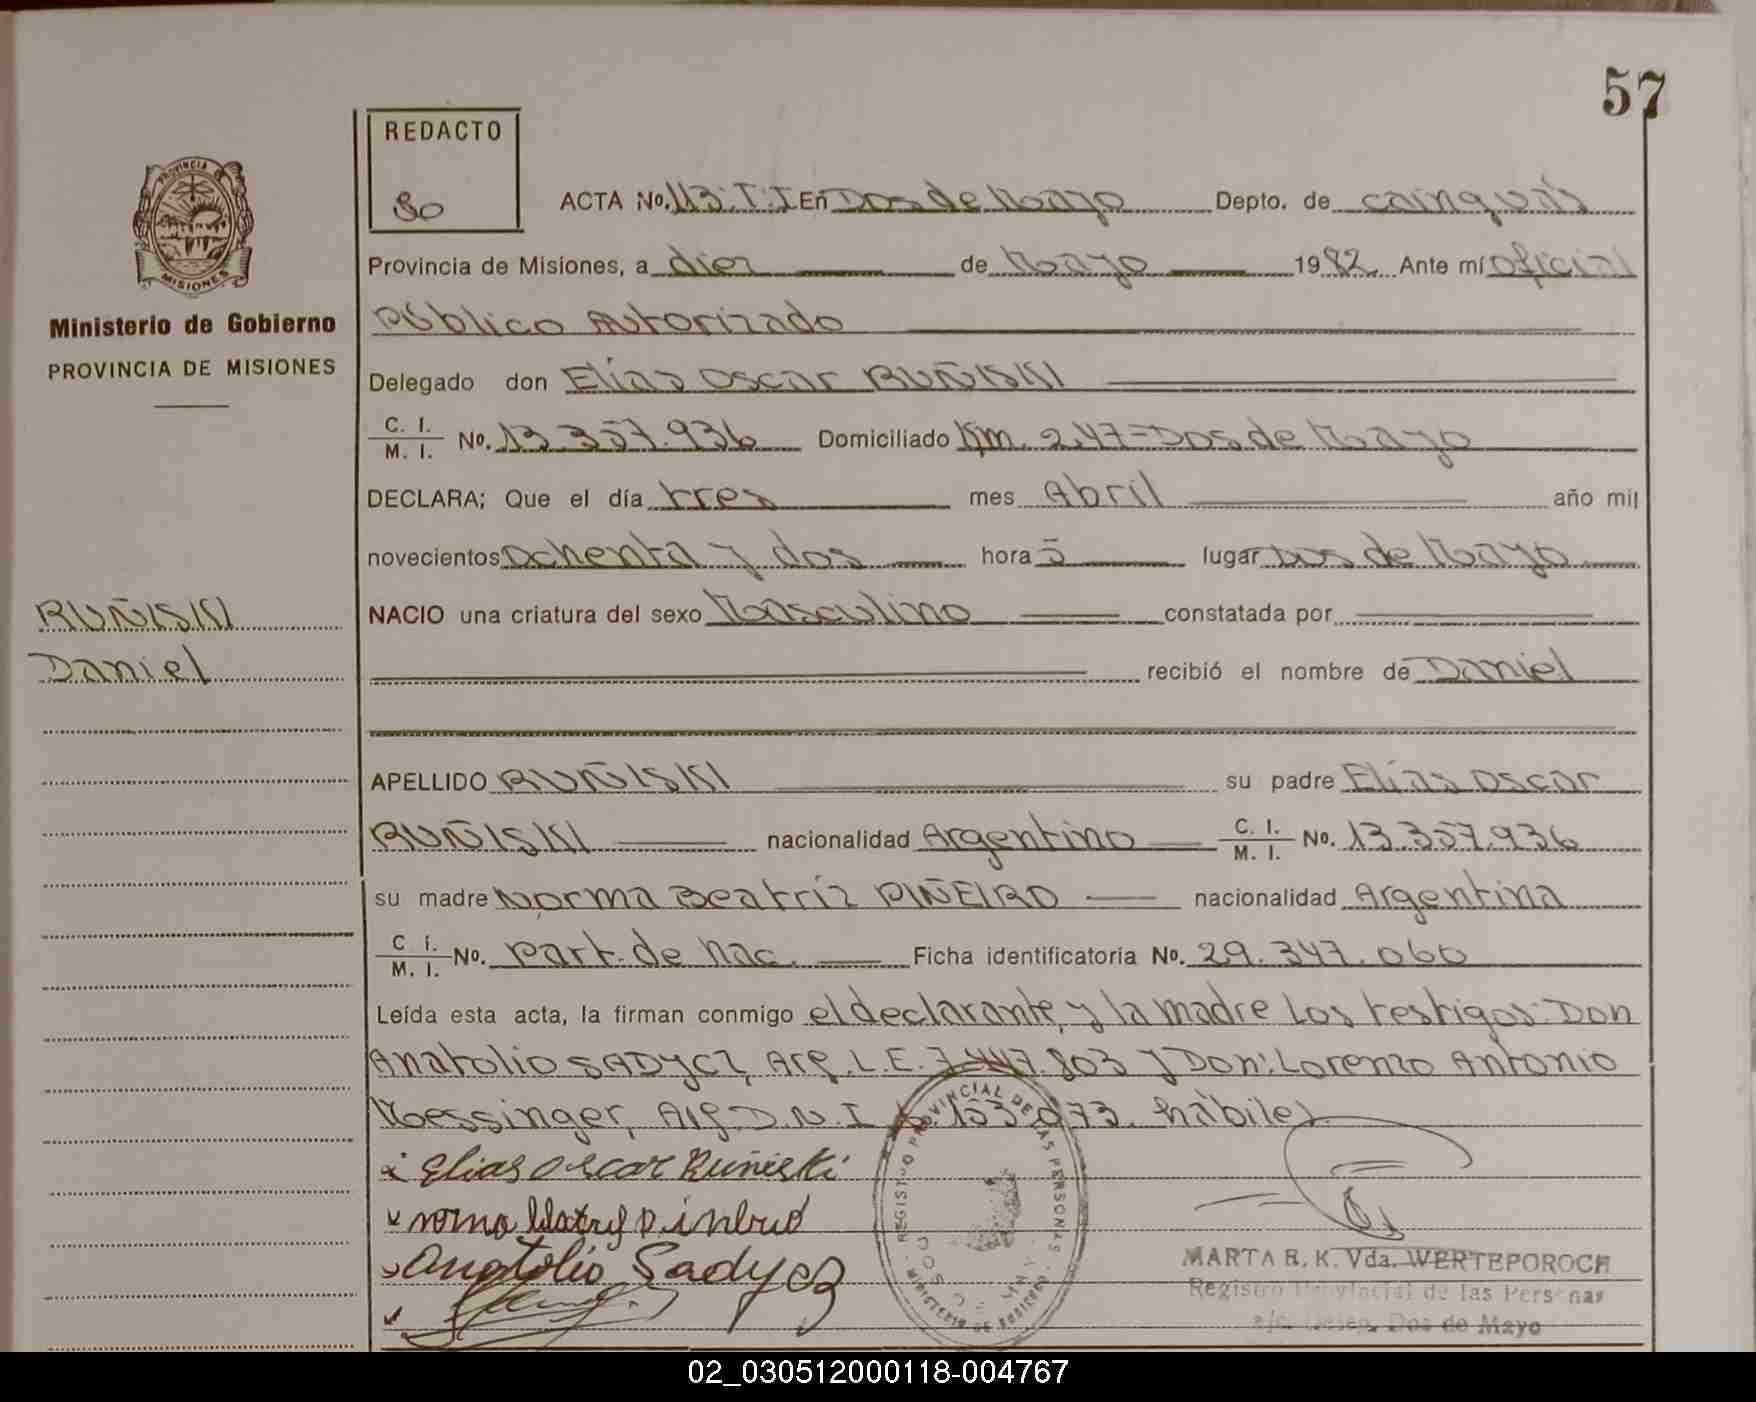 57
REDACTO
80
PROVINCIA DE
MISIONES
Ministerio de Gobierno
PROVINCIA DE MISIONES
RUÑISKI
Daniel
ACTA No. 113.T:I En Dos de Mayo Depto. de cainguás
Provincia de Misiones, a diez de Mayo 1982 Ante mí oficial
Público Autorizado
Delegado don Elías Oscar RUÑISKI
C. I. / M. I. No. 13.357.936 Domiciliado Km. 247-Dos de Mayo
DECLARA; Que el día tres mes Abril año mil
novecientos Ochenta y dos hora 5 lugar Dos de Mayo
NACIO una criatura del sexo Masculino constatada por
recibió el nombre de Daniel
APELLIDO RUÑISKI su padre Elías Oscar
RUÑISKI nacionalidad Argentino C. I. / M. I. No. 13.357.936
su madre Norma Beatríz PIÑEIRO nacionalidad Argentina
C. I. / M. I. No. Part. de Nac. Ficha identificatoria No. 29.347.060
Leída esta acta, la firman conmigo el declarante, y la madre Los testigos: Don
Anatolio SADYCZ, Arg. L.E. 7.447.803 y Don: Lorenzo Antonio
Messinger, Arg. D.N.I. 153.073. hábiles
Elias Oscar Ruñiski
Anatolio Sadycz
REGISTRO PROVINCIAL DE LAS PERSONAS
MARTA R. K. Vda. WERTEPOROCH
Registro Provincial de las Personas
a/c. Deleg. Dos de Mayo
02_030512000118-004767